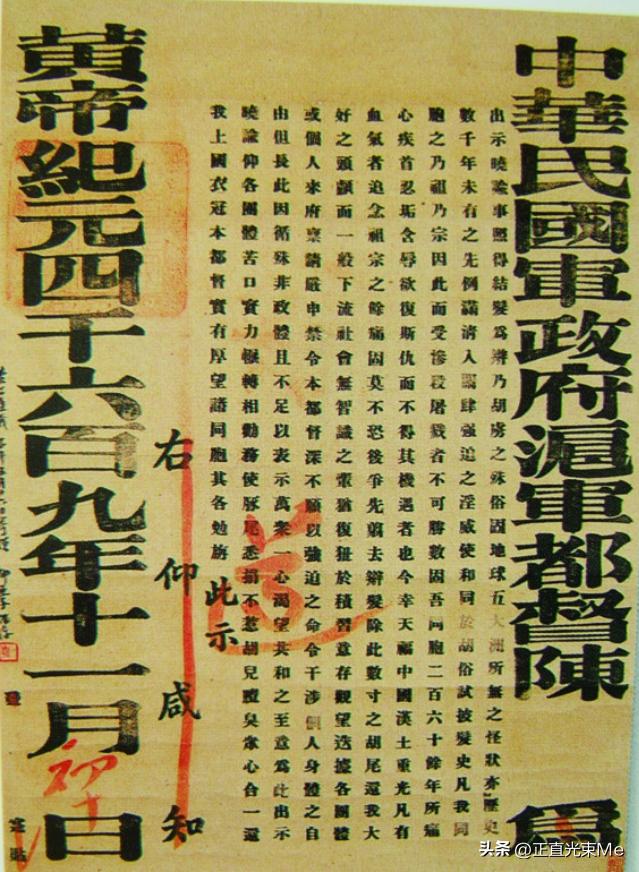 中華民國軍政府滬軍都督陳 爲
出示曉諭事照得結髮爲辮乃胡虜之殊俗固地球五大洲所無之怪狀亦歷史
數千年未有之先例滿清入關肆強迫之淫威使和同於胡俗試披髮史凡我同
胞之乃祖乃宗因此而受慘殺屠戮者不可勝數固吾同胞二百六十餘年所痛
心疾首忍垢含辱欲復斯仇而不得其機遇者也今幸天福中國漢土重光凡有
血氣者追念祖宗之餘痛固莫不恐後爭先翦去辮髮除此數寸之胡尾還我大
好之頭顱而一般下流社會無智識之輩猶復狃於積習意存觀望迭據各團體
或個人來府稟請嚴申禁令本都督深不願以強迫之命令干涉個人身體之自
由但長此因循殊非政體且不足以表示萬衆一心渴望共和之至意爲此出示
曉諭仰各團體苦口實力輾轉相勸務使豚尾悉捐不惹胡兒膻臭衆心合一還
我上國衣冠本都督實有厚望諸同胞其各勉旃
此示
右仰咸知
黃帝紀元四千六百九年十一月初十日
實貼
頭条 @正直光束Me